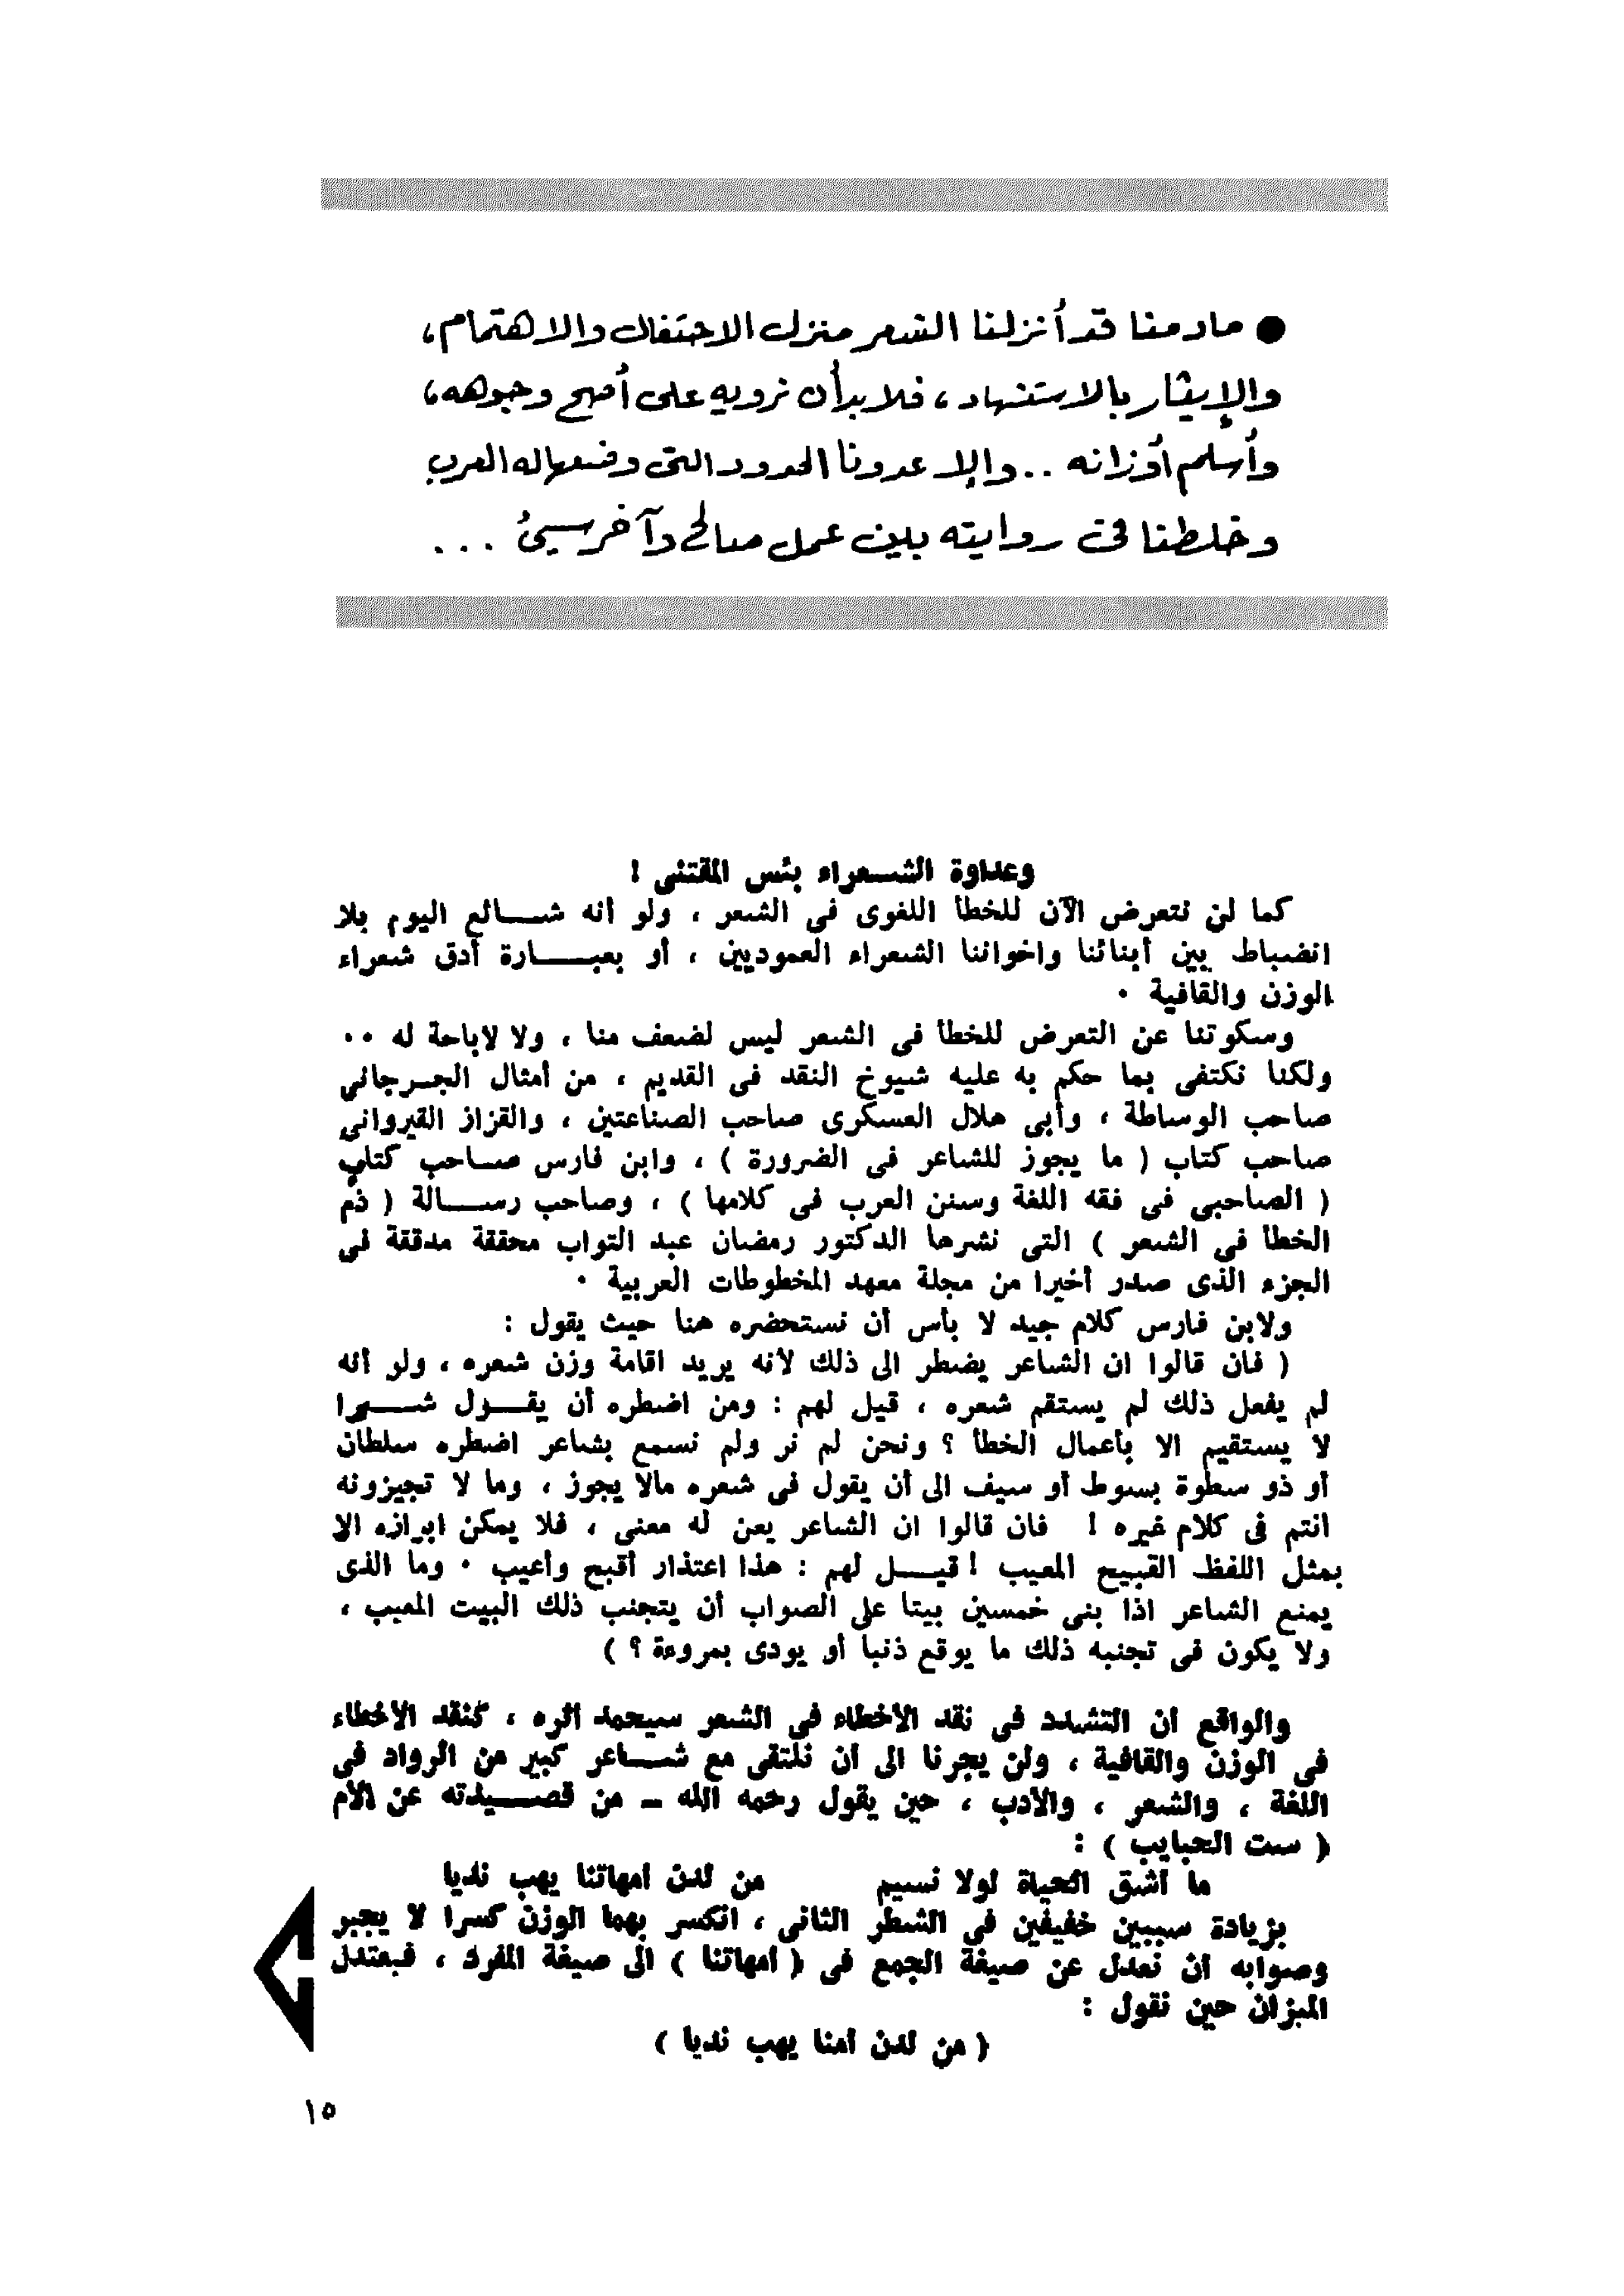 ● مادمنا قد أنزلنا الشعر منزل الاحتفال والاهتمام،
والإيثار بالاستشهاد، فلابد أن نرويه على أصح وجوهه،
وأسلم أوزانه .. وإلا عدونا الحدود التى وضعها له العرب
وخلطنا فى روايته بين عمل صالح وآخر سيئ ...
وعداوة الشعراء بئس المقتنى !
كما لن نتعرض الآن للخطأ اللغوى فى الشعر ، ولو أنه شائع اليوم بلا
انضباط بين أبنائنا واخواننا الشعراء العموديين ، أو بعبارة أدق شعراء
الوزن والقافية .
وسكوتنا عن التعرض للخطأ فى الشعر ليس لضعف منا ، ولا لاباحة له ..
ولكنا نكتفى بما حكم به عليه شيوخ النقد فى القديم ، من أمثال الجرجانى
صاحب الوساطة ، وأبى هلال العسكرى صاحب الصناعتين ، والقزاز القيروانى
صاحب كتاب ( ما يجوز للشاعر فى الضرورة ) ، وابن فارس صاحب كتاب
( الصاحبى فى فقه اللغة وسنن العرب فى كلامها ) ، وصاحب رسالة ( ذم
الخطأ فى الشعر ) التى نشرها الدكتور رمضان عبد التواب محققة مدققة فى
الجزء الذى صدر أخيرا من مجلة معهد المخطوطات العربية .
ولابن فارس كلام جيد لا بأس أن نستحضره هنا حيث يقول :
( فان قالوا ان الشاعر يضطر الى ذلك لأنه يريد اقامة وزن شعره ، ولو أنه
لم يفعل ذلك لم يستقم شعره ، قيل لهم : ومن اضطره أن يقول شعرا
لا يستقيم الا بأعمال الخطأ ؟ ونحن لم نر ولم نسمع بشاعر اضطره سلطان
أو ذو سطوة بسوط أو سيف الى أن يقول فى شعره مالا يجوز ، وما لا تجيزونه
انتم فى كلام غيره ! فان قالوا ان الشاعر يعن له معنى ، فلا يمكن ابرازه الا
بمثل اللفظ القبيح المعيب ! قيل لهم : هذا اعتذار أقبح وأعيب . وما الذى
يمنع الشاعر اذا بنى خمسين بيتا على الصواب أن يتجنب ذلك البيت المعيب ،
ولا يكون فى تجنبه ذلك ما يوقع ذنبا أو يودى بمروءة ؟ )
والواقع ان التشدد فى نقد الأخطاء فى الشعر سيحمد اثره ، كنقد الأخطاء
فى الوزن والقافية ، ولن يجرنا الى أن نلتقى مع شاعر كبير من الرواد فى
اللغة ، والشعر ، والأدب ، حين يقول رحمه الله - من قصيدته عن الأم
( ست الحبايب ) :
ما أشق الحياة لولا نسيم من لدن امهاتنا يهب نديا
بزيادة سببين خفيفين فى الشطر الثانى ، انكسر بهما الوزن كسرا لا يجبر
وصوابه ان نعدل عن صيغة الجمع فى ( أمهاتنا ) الى صيغة المفرد ، فيعتدل
الميزان حين نقول :
( من لدن امنا يهب نديا )
١٥